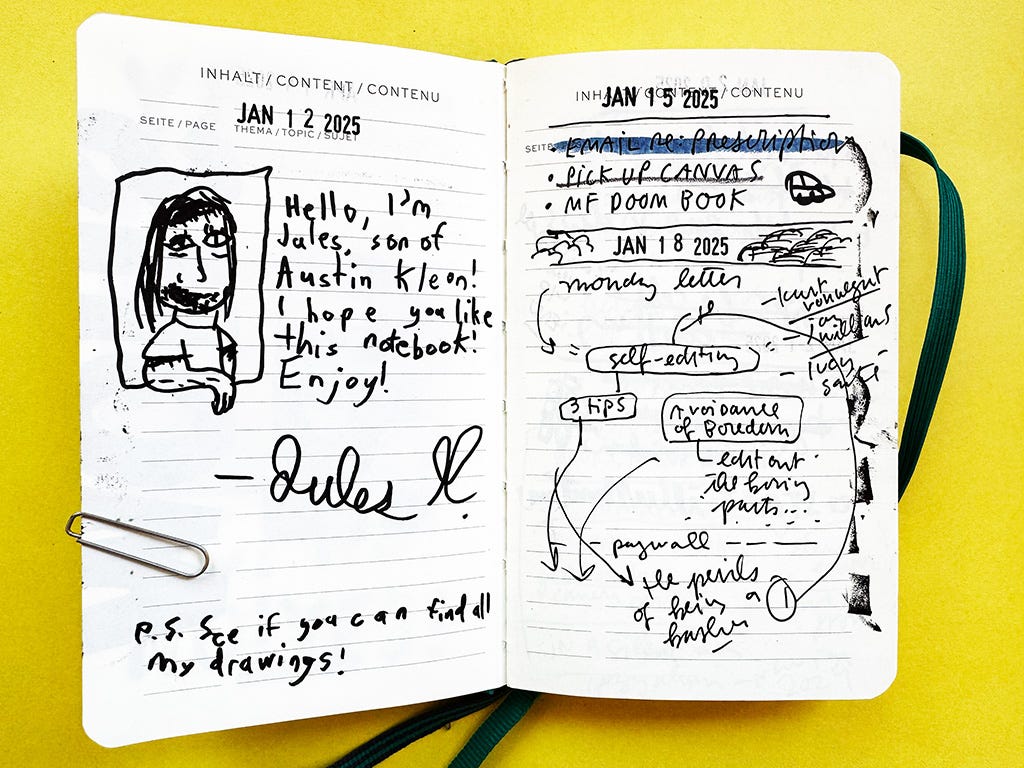 INHALT / CONTENT / CONTENU
JAN 12 2025
SEITE / PAGE THEMA / TOPIC / SUJET
Hello, I'm
Jules, son of
Austin Kleon!
I hope you like
this notebook!
Enjoy!
— Jules K.
P.S. See if you can find all
my drawings!
INHALT / CONTENT / CONTENU
JAN 15 2025
SEITE
• EMAIL re: prescription
• PICK UP CANVAS
• MF DOOM BOOK
JAN 18 2025
monday letter
- kurt
vonnegut
- joy
williams
- lucy
sante
" self-editing "
3 tips
Avoidance
of Boredom
edit out
the boring
parts...
- - paywall - - - -
the perils
of being a
1